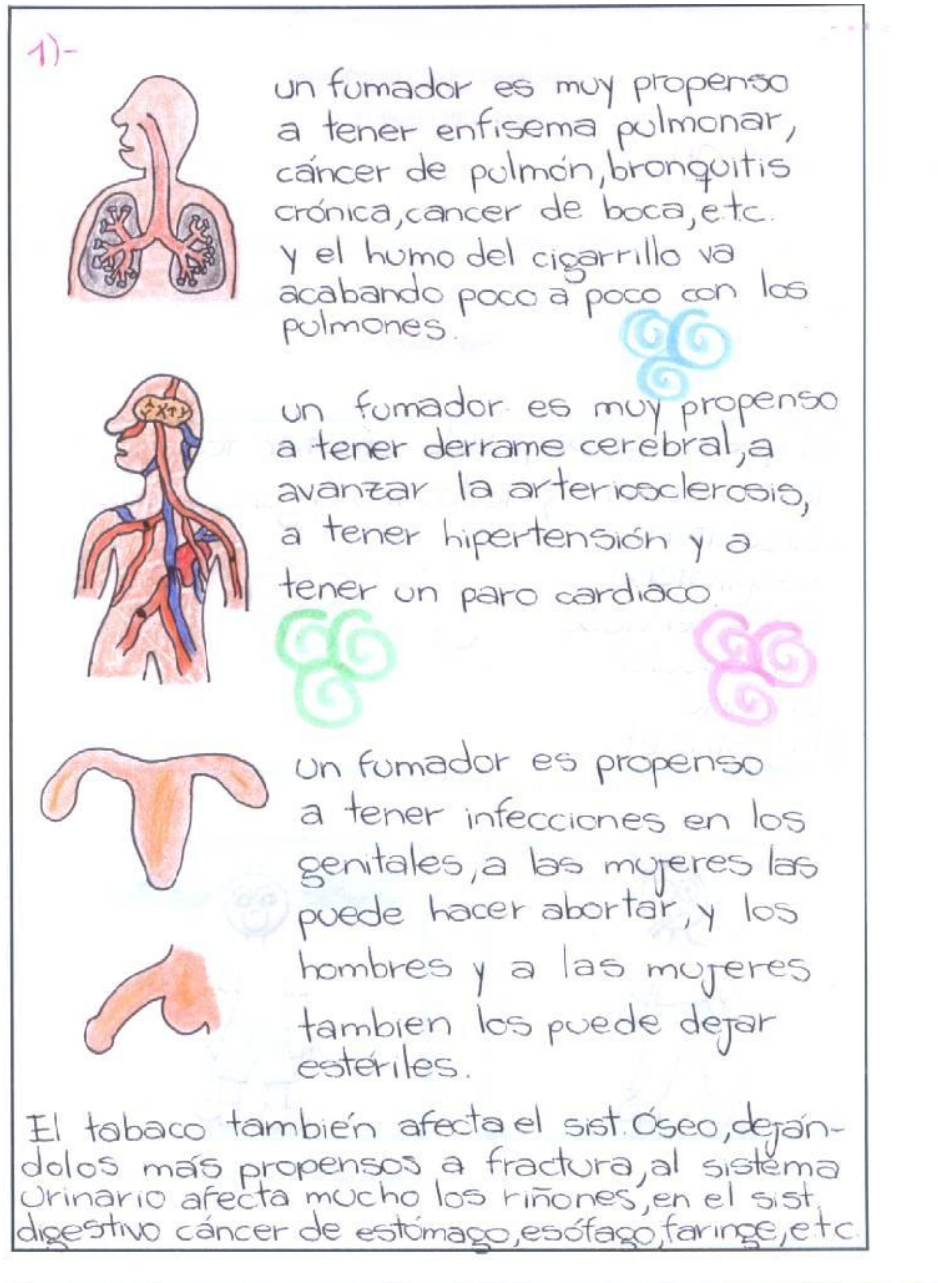 1)-
un fumador es muy propenso
a tener enfisema pulmonar,
cáncer de pulmón, bronquitis
crónica, cancer de boca, etc.
y el humo del cigarrillo va
acabando poco a poco con los
pulmones.
un fumador es muy propenso
a tener derrame cerebral, a
avanzar la arteriosclerosis,
a tener hipertensión y a
tener un paro cardiaco.
un fumador es propenso
a tener infecciones en los
genitales, a las mujeres las
puede hacer abortar, y los
hombres y a las mujeres
tambien los puede dejar
estériles.
El tabaco también afecta el sist. Óseo, deján-
dolos más propensos a fractura, al sistema
Urinario afecta mucho los riñones, en el sist.
digestivo cáncer de estómago, esófago, faringe, etc.